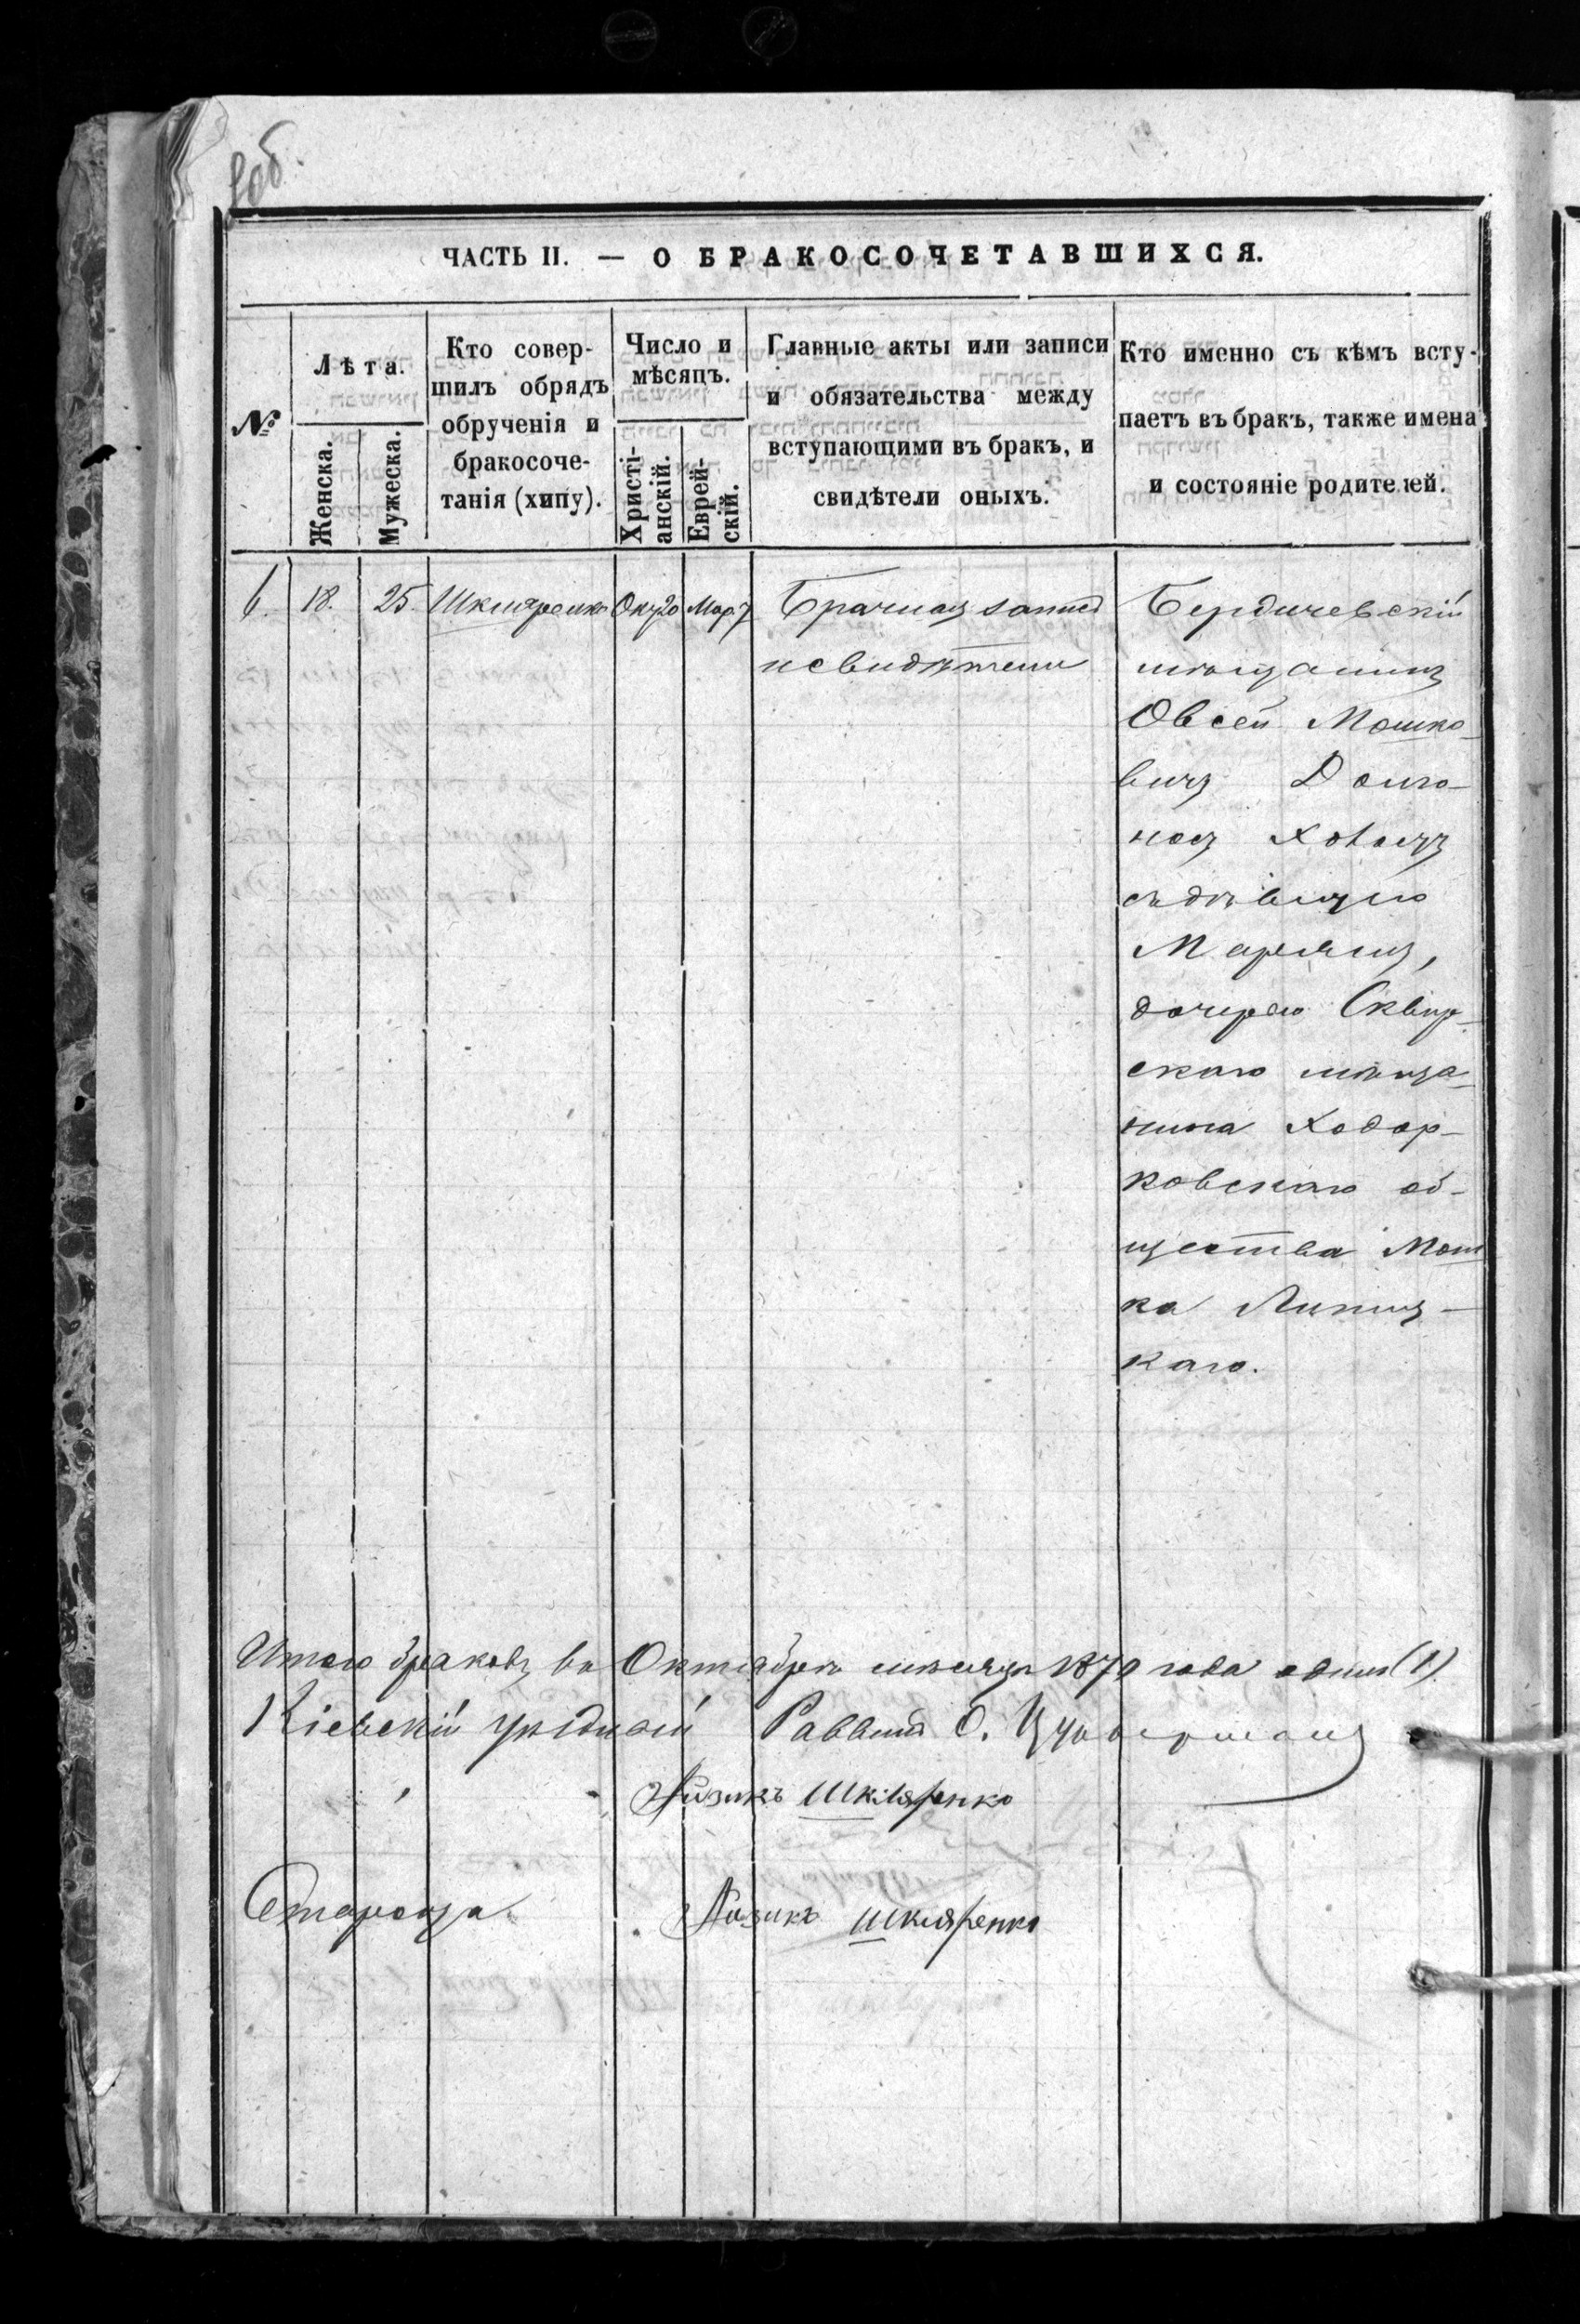 ЧАСТЬ II. — О БРАКОСОЧЕТАВШИХСЯ.
№
Лѣта.
Женска.
Мужеска.
Кто совер-
шилъ обрядъ
обрученія и
бракосоче-
танія (хупу).
Число и
мѣсяцъ.
Христі-
анскій.
Еврей-
скій.
Главные акты или записи
и обязательства между
вступающими въ бракъ, и
свидѣтели оныхъ.
Кто именно съ кѣмъ всту-
паетъ въ бракъ, также имена
и состояніе родителей.
6. 18. 25. Шкляренко Окт 20 Мар. 7
Брачная запись
и свидѣтели
Бердичевскій
мѣщанинъ
Овсей Мошко-
вичъ Долго-
носъ
съ дѣвицею
Маріею,
дочерью Сквир-
скаго мѣща-
нина Ходор-
ковскаго об-
щества Мош
ка Липиц-
каго.
Итого браковъ въ Октябрѣ мѣсяцѣ 1879 года одинъ (1).
Кіевскій уѣздный Раввинъ О. Цукерманъ
Айзикъ Шкляренко
Староста Айзикъ Шкляренко